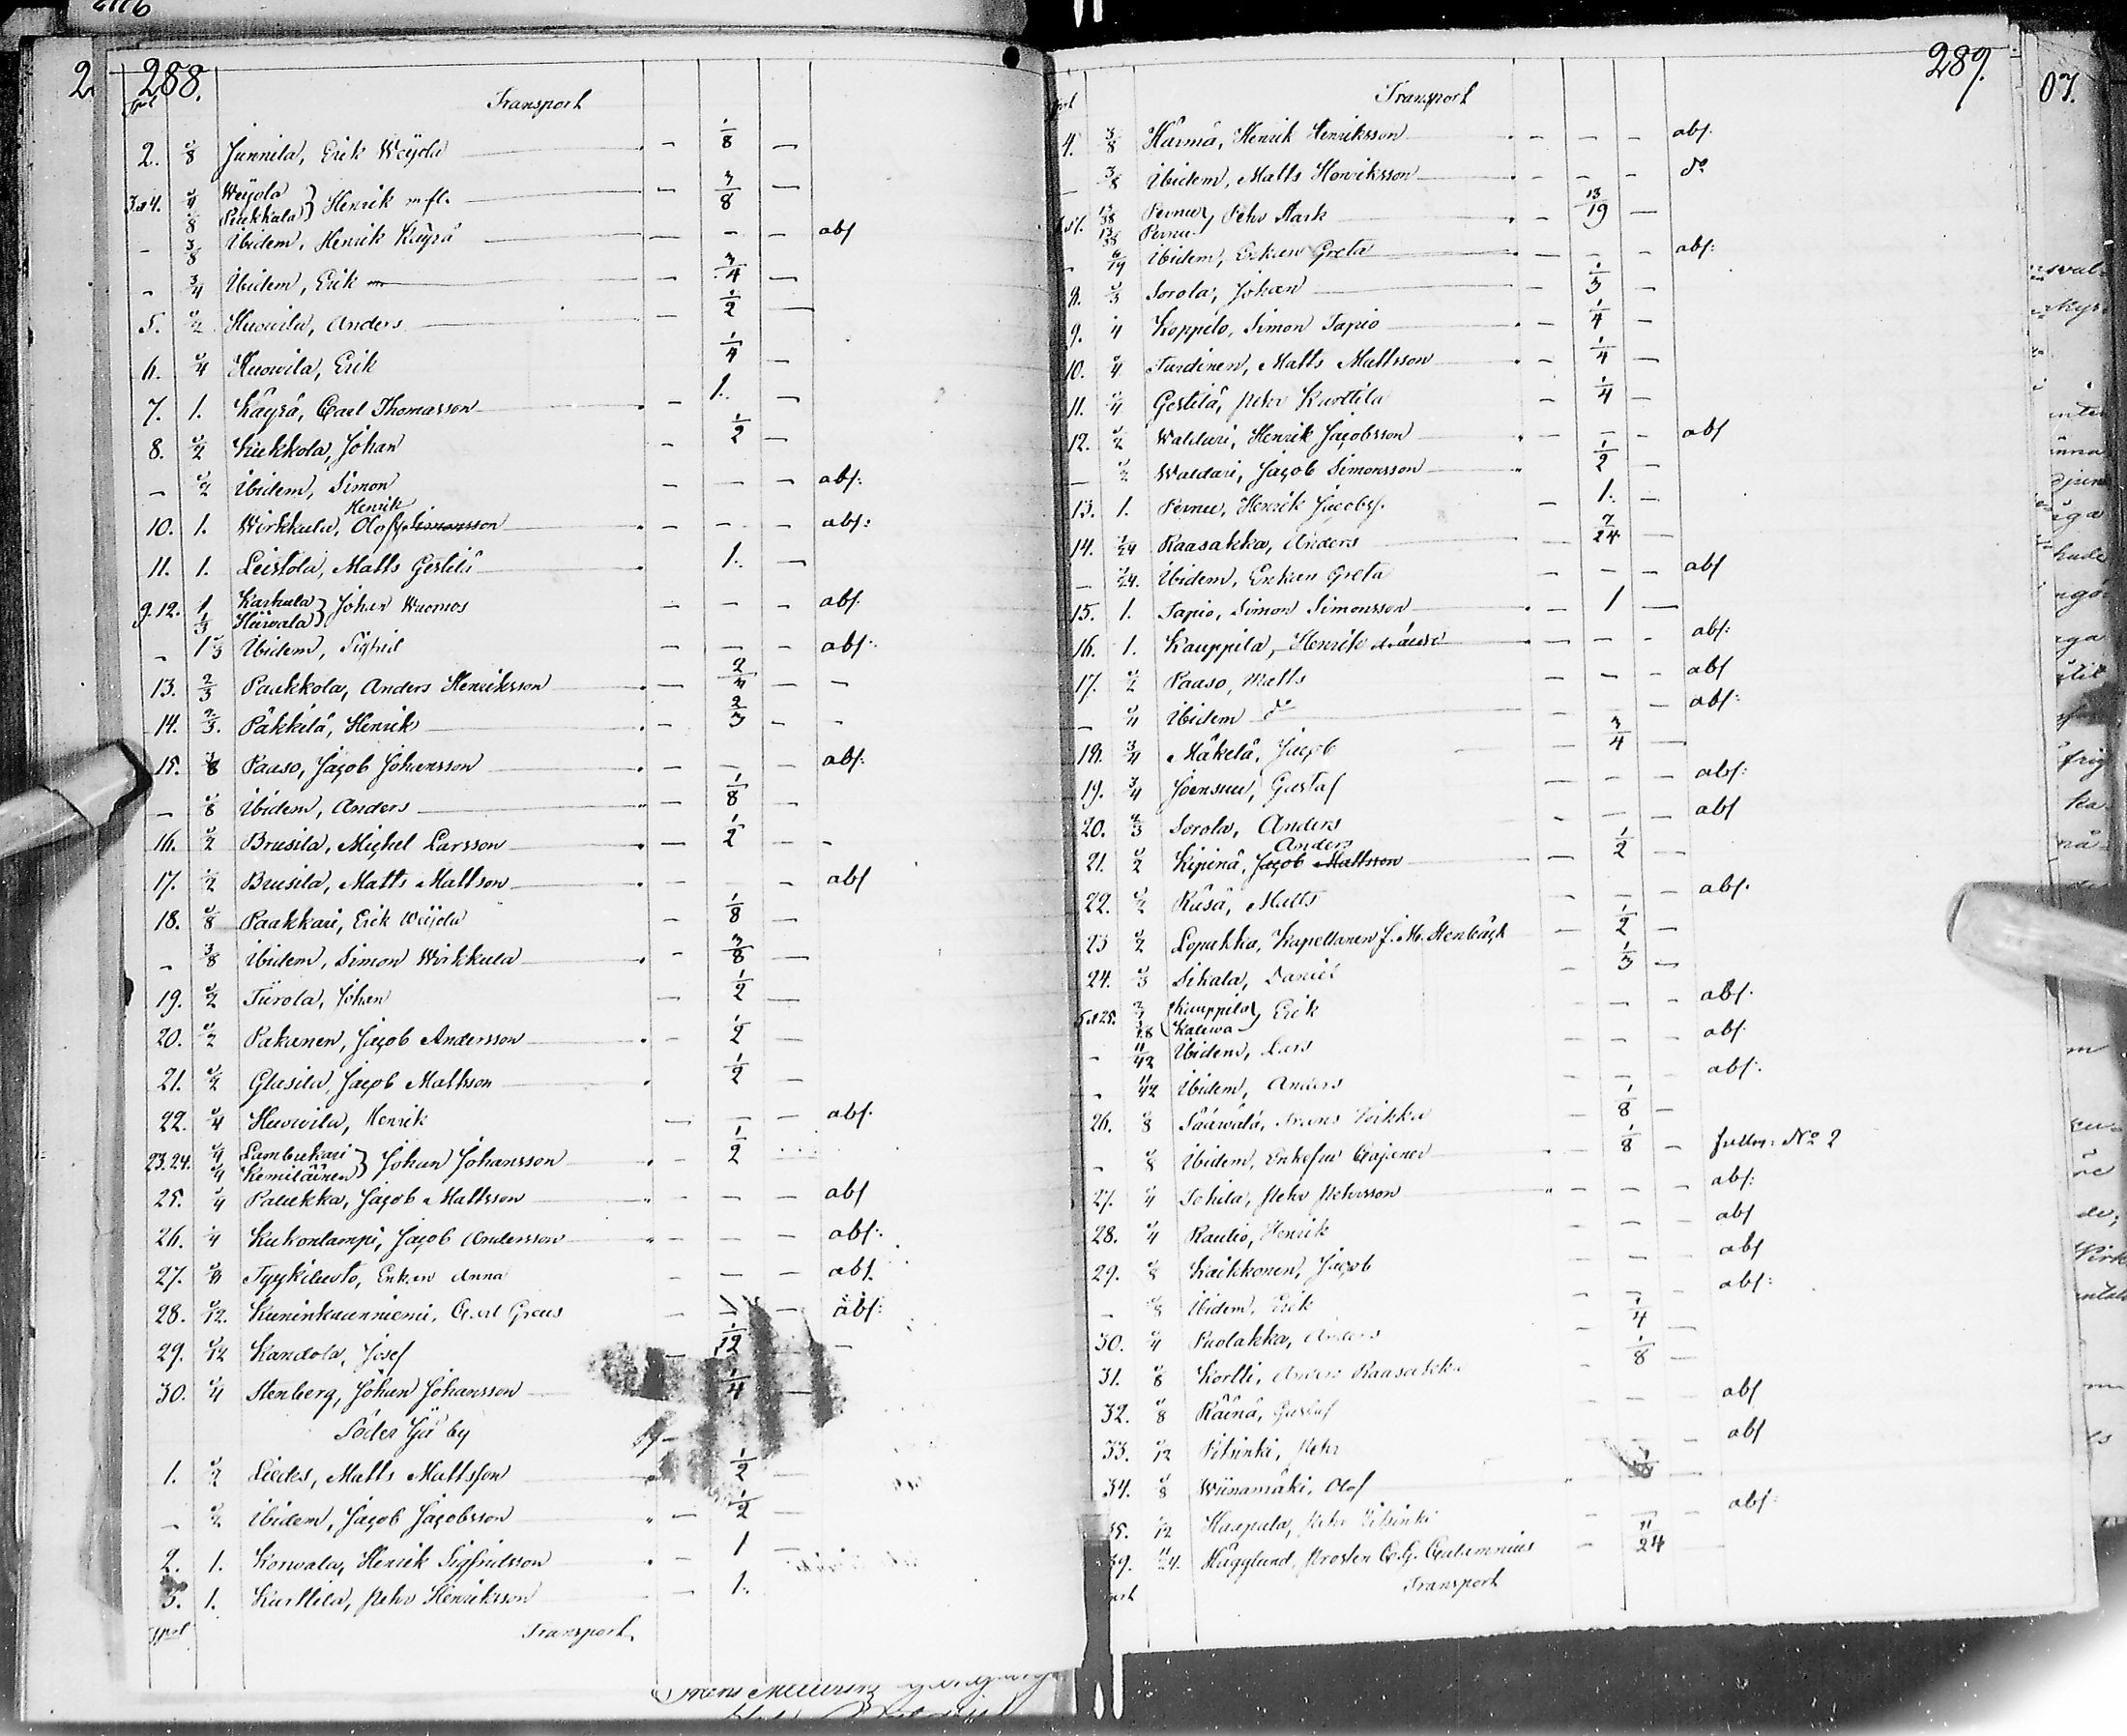 288.
Tpt Transport
2. 1/8 Junnila, Erik Weijola - 1/8 -
3.o4. 1/4 Weijola } Henrik m fl. - 3/8 -
1/8 Pukkala
- 3/8 Ibidem, Henrik Käyrä - - - abs
- 3/4 Ibidem, Erik - 3/4 -
5. 1/2 Huovila, Anders - 1/2 -
6. 1/4 Huovila, Erik 1/4 -
7. 1. Käyrä, Carl Thomasson - 1. -
8. 1/2 Kukkola, Johan - 1/2 -
- 1/2 Ibidem, Simon - - - abs:
Henrik
10. 1. Wirkkula, Olof Simonsson - - - abs:
11. 1. Leistola, Matts Gestilä 1. -
9.12. 1 Karhula } Johan Wuomos - - - abs.
1/3 Hiivala
- 1 1/3 Ibidem, Sigfrid - - - abs:
13. 2/3 Paakkola, Anders Henriksson - 2/3 - -
14. 2/3. Päkkilä, Henrik - 2/3 - -
15. 3/8 Paaso, Jacob Johansson - - - abs:
- 1/8 Ibidem, Anders - 1/8 -
16. 1/2 Brusila, Michel Larsson - 1/2 - -
17. 1/2 Brusila, Matts Mattson - - - abs
18. 1/8 Paakkari, Erik Weijola - 1/8 -
- 3/8 Ibidem, Simon Wirkkula - 3/8 -
19. 1/2 Tiirola, Johan - 1/2 -
20. 1/2 Pakanen, Jacob Andersson - 1/2 -
21. 1/2 Glasila, Jacob Mattsson 1/2 -
22. 1/4 Huovila, Henrik - - - abs.
23.24. 1/4 Lambukari } Johan Johansson - 1/2
1/4 Kemiläinen
25. 1/4 Palukka, Jacob Mattsson - - - abs
26. 1/4 Kukonlampi, Jacob Andersson - - - abs:
27. 1/8 Tyykiluoto, Enkan Anna - - - abs
28. 1/12. Kuninkaanniemi, Carl Greus - - - abs:
29. 1/12 Kandola, Josef - 1/12 -
30. 1/4 Stenberg, Johan Johansson 1/4 -
Söder Yjä by
1. 1/2 Liedes, Matts Mattsson 1/2 -
- 1/2 Ibidem, Jacob Jacobsson - 1/2 -
2. 1. Korvala, Henrik Sigfridsson - 1 -
3. 1. Karttila, Pehr Henriksson - 1.
Tpt Transport
289.
Transport
4. 3/8 Härmä, Henrik Henriksson - - - abs.
- 3/8 Ibidem, Matts Henriksson - - - do
13/38 Pernu } Pehr Stark - 13/19 -
13/38 Pernu
- 6/19 Ibidem, Enkan Greta - - - abs:
8. 1/3 Sorola, Johan - 1/3 -
9. 1/4 Koppelo, Simon Tapio - 1/4 -
10. 1/4 Turdinen, Matts Mattsson - 1/4 -
11. 1/4 Gestilä, Pehr Karttila - 1/4 -
12. 1/2 Waldari, Henrik Jacobsson - - - abs
- 1/2 Waldari, Jacob Simonsson 1/2 -
13. 1. Pernu, Henrik Jacobss. - 1. -
14. 7/24 Raasakka, Anders - 7/24 -
- 7/24. Ibidem, Enkan Greta - - - abs
15. 1. Tapio, Simon Simonsson - 1 -
16. 1. Kauppila, Henrik - - - abs:
17. 1/2 Paaso, Matts - - - abs
- 1/4 Ibidem do - - - abs:
18. 3/4 Mäkelä, Jacob - 3/4 -
19. 3/4 Joensuu, Gustaf - - - abs:
20. 2/3 Sorola, Anders - - - abs
Anders
21. 1/2 Kipinä, Jacob Mattsson - 1/2 -
22. 1/2 Räsä, Matts - - - abs.
23 1/2 Lopakka, Kapellanen J. M. Stenbäck - 1/2 -
24. 1/3 Sihala, Daniel - 1/3 -
25. Kauppila } Erik - - - abs.
Kaleva
- 11/42 Ibidem, Lars - - - abs.
- 11/42 Ibidem, Anders - - - abs:
26. 1/8 Säävälä, Frans Loikka - 1/8 -
- 1/8 Ibidem, Enkefru Cajaner - 1/8 - fullm: No 2
27. 1/4 Tohila, Pehr Pehrsson - - - abs:
28. 1/4 Rautio, Henrik - - - abs
29. 1/8 Kaikkonen, Jacob - - abs
- 1/8 Ibidem, Erik - - abs:
30. 1/4 Puolakka, Anders - 1/4 -
31. 1/8 Kortti, Anders Raasakka - 1/8 -
32. 1/8 Räinä, Gustaf - - abs
33. 1/12 Pitsinki, Pehr - abs
34. 1/8 Wiinamäki, Olof -
35. 1/12 Haapala, Pehr Pitsinki - - abs:
39. 11/24. Hägglund, Prosten C. G. Calamnius - 11/24
Transport